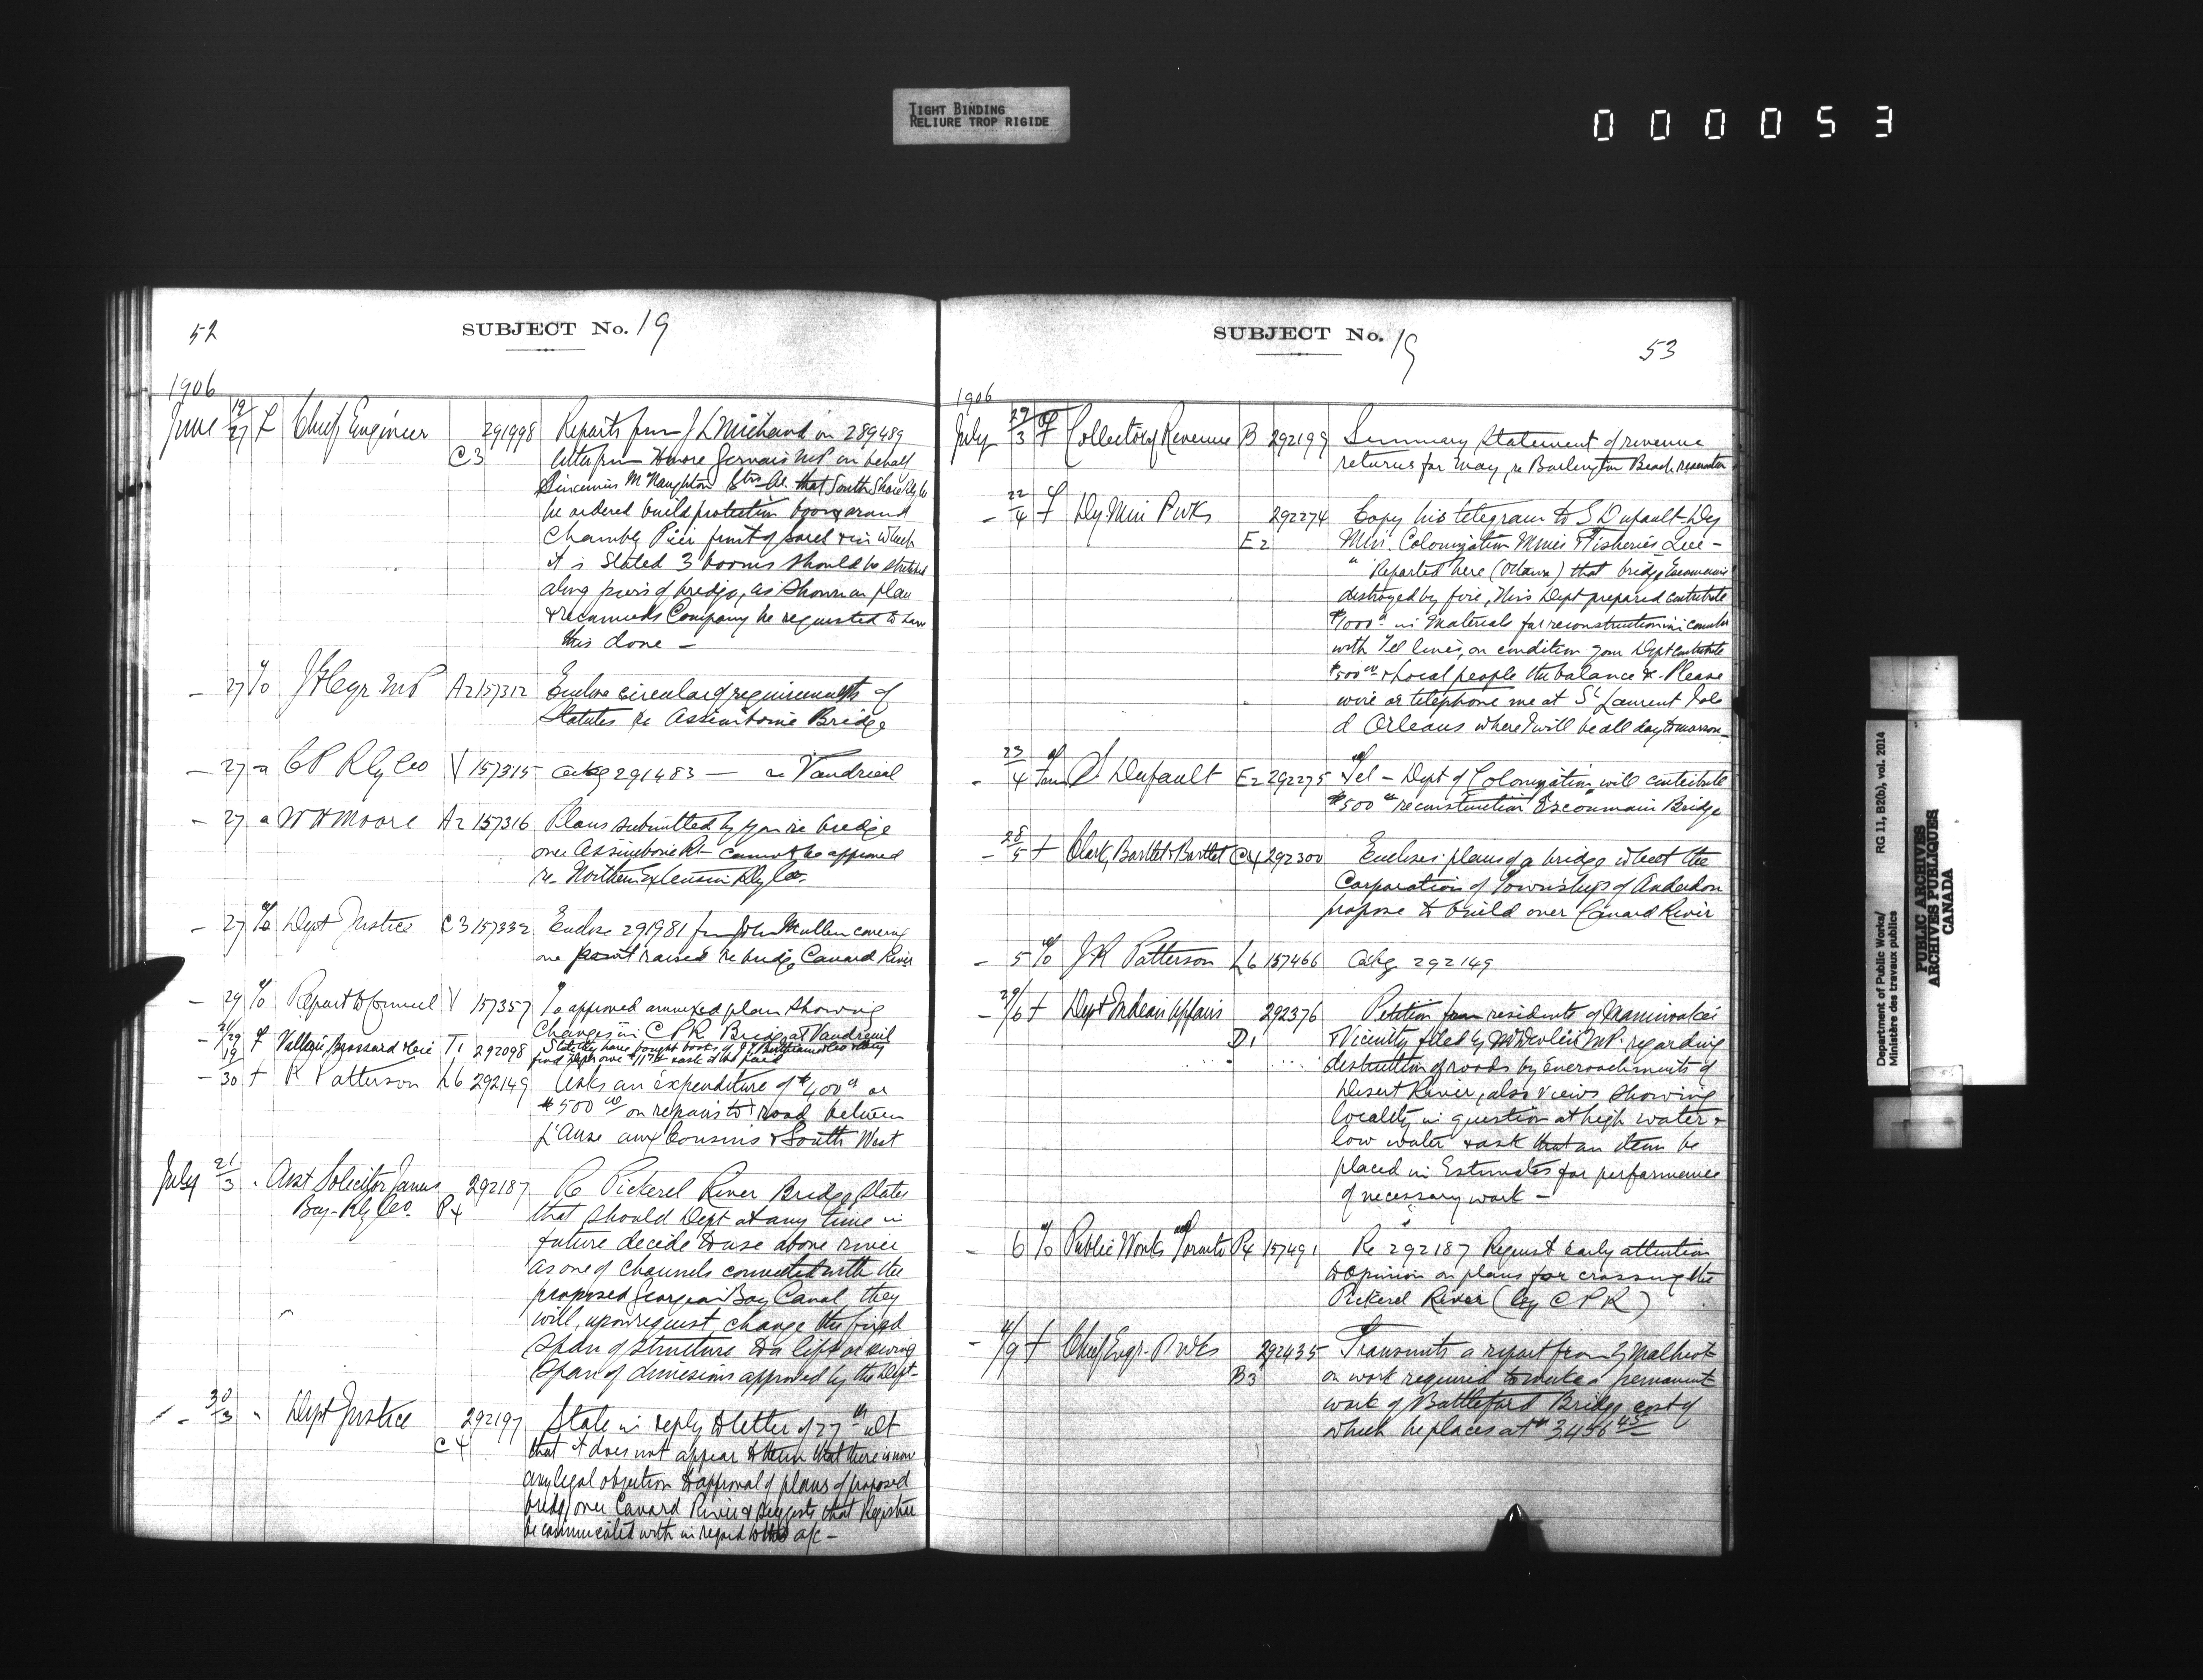 TIGHT BINDING
RELIURE TROP RIGIDE
000053
52
SUBJECT No. 19
1906
June 19/27 f Chief Engineer 291998 Reports from J L Michaud on 289489
C3 letter from Honore Gervais MP on behalf
Sincennes McNaughton that South Shore Rly Co
be ordered build protection booms around
Chambly Pier front of Sorel & in which
it is stated 3 booms should be stretched
along piers of bridge, as shown on plan
& recommends Company be requested to have
this done -
- 27 % J Cyr MP A2 157312 Enclose circular of requirements of
Statutes re Assiniboine Bridge
- 27 a C P Rly Coo V 157315 ackg 291483 - re Vaudrieul
- 27 a W H Moore A2 157316 Plans submitted by you re bridge
over Assiniboine Rr cannot be approved
re Northern Extension Rly Co.
- 27 % Dept Justice C3 157332 Enclose 291981 from John Mullen covering
one point raised re bridge Canard River
- 29 % Report to Council V 157357 To approved annexed plan showing
Changes in C P R Bridge at Vaudreuil
- 29 f Brossard T1 292098 State they have bought boat of
19/30 + R Patterson L6 292149 Asks an expenditure of $400 00 or
$500 00 on repairs to road between
L'Anse aux Cousins & South West
July 21/3 Asst Solicitor James 292187 Re Pickerel River Bridge, States
Bay Rly Co. P4 that should Dept at any time in
future decide to use above river
as one of channels connected with the
proposed Georgian Bay Canal, they
will, upon request change the fixed
span of structure to a lift or swing
span of dimesions approved by the Dept-
- 30/3 " Dept Justice 292197 State in reply to letter of 27th ult
C4 that it does not appear to them that there is now
any legal objection to approval of plans of proposed
bridge over Canard River & suggests that Registree
be communicated with in regard to his a/c -
SUBJECT No. 19
53
1906
July 29/3 Collector of Revenue B 292199 Summary Statement of revenue
returns for May, re Burlington Beach
- 22/4 f Dy Min PWks 292274 Copy his telegram to S Dufault Dy
E2 Min. Colonization Mines & Fisheries Que -
" Reported here (Ottawa) that bridge Escoumains
destroyed by fire, this Dept prepared contribute
$1000 in materials for reconstruction in
with Tel lines, on condition your Dept contribute
$500 00 & Local people the balance &. Please
wire or telephone me at St Laurent Isle
d Orleans where I will be all day tomorrow -
- 23/4 S Dufault E2 292275 Tel - Dept of Colonization will contribute
$500 00 reconstruction Escoumain Bridge
- 28/5 + Clark, Bartlet & Bartlet C4 292300 Encloses plans of a bridge which the
Corporation of Townships of Anderdon
propose to build over Canard River
- 5 % J R Patterson L6 157466 Ackg 292149
- 29/6 + Dept Indian Affairs 292376 Petition from residents of Maniwaki
D1 & Vicinity filed by MP. regarding
destruction of roads by Encroachments of
Desert River, also views showing
locality in question at high water &
low water & ask that an item be
placed in Estimates for performance
of necessary work -
- 6 % Public Works Toronto P4 157491 Re 292187 Request early attention
& Opinion on plans for crossing the
Pickerel River (by C P R)
- 4/9 + Chief Engr. P Wks 292435 Transmits a report from Z Malhiot
B3 on work required to make a permanent
work of Battleford Bridge cost of
which he places at $3.456 45
Department of Public Works/ RG 11, B2(b), vol. 2014
Ministère des travaux publics
PUBLIC ARCHIVES
ARCHIVES PUBLIQUES
CANADA